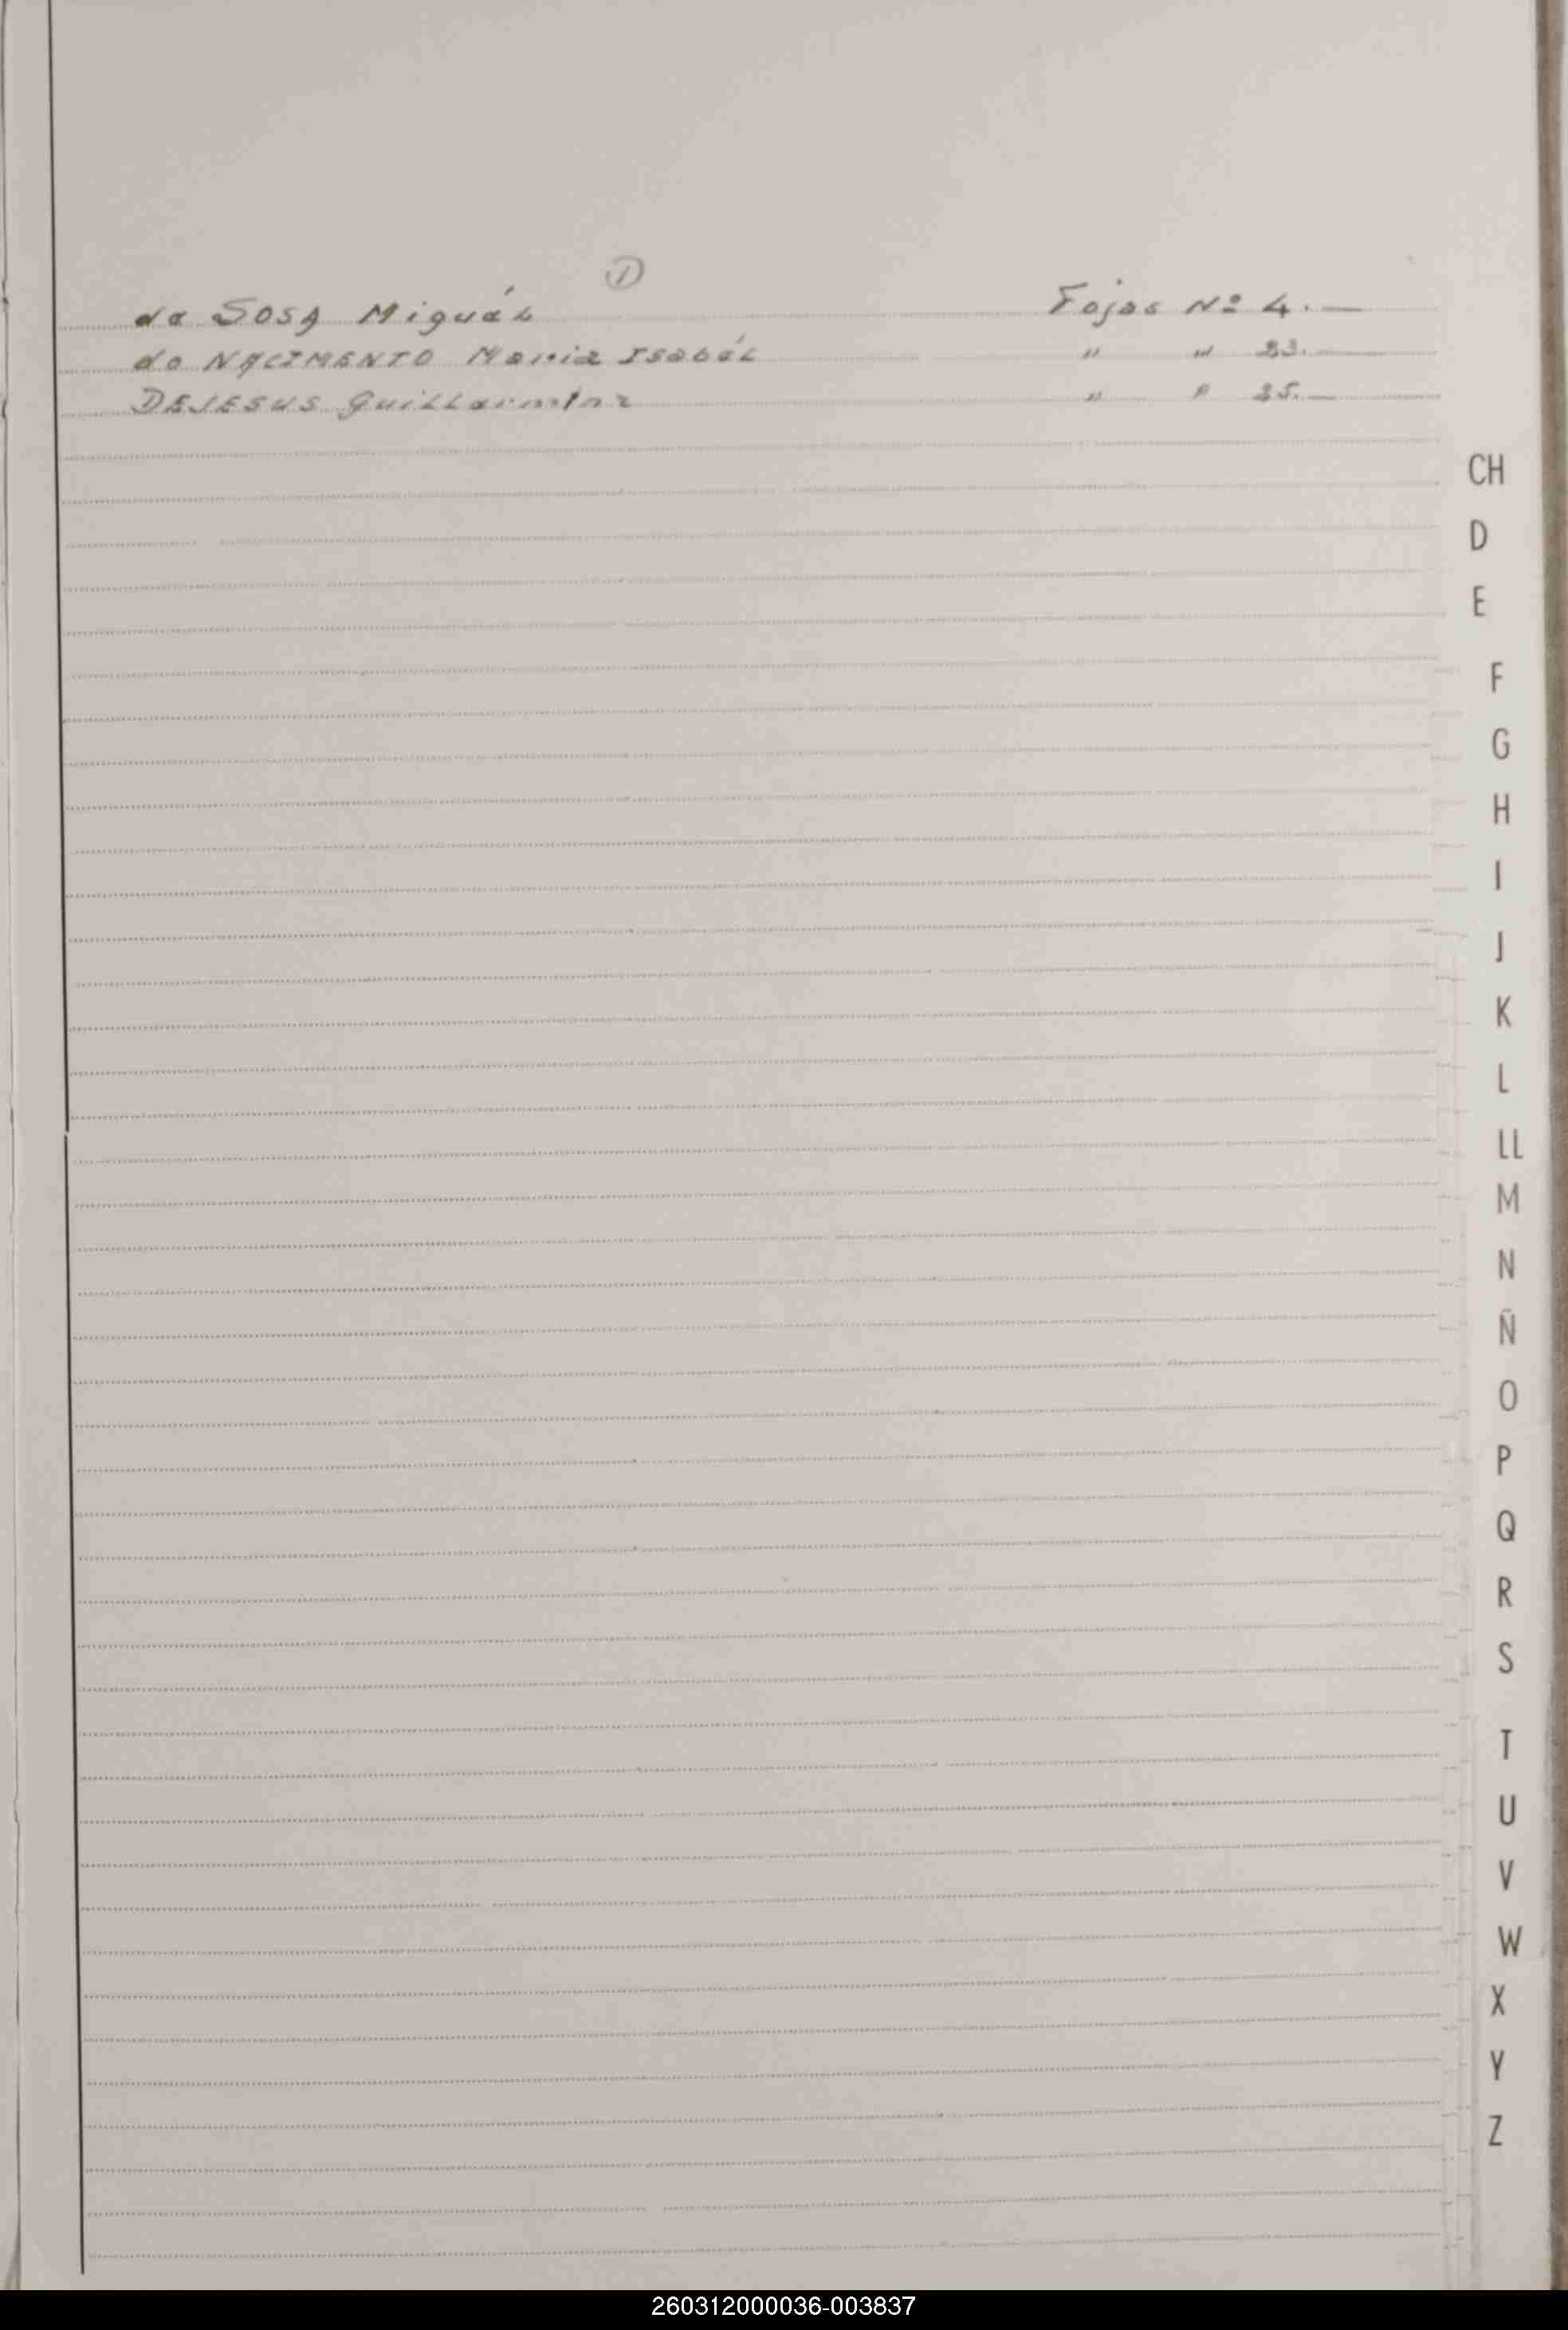 D
da SOSA Miguél Fojas Nº 4.—
do NACIMENTO Maria Isabél " " 23.—
DEJESUS Guillermina " " 25.—
CH
D
E
F
G
H
I
J
K
L
LL
M
N
Ñ
O
P
Q
R
S
T
U
V
W
X
Y
Z
260312000036-003837